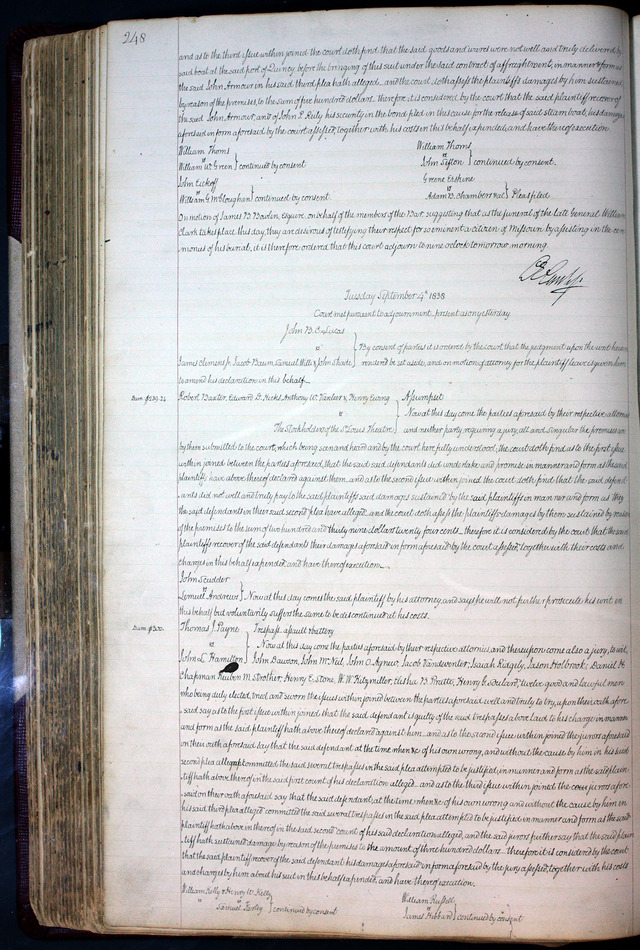 248
and as to the third issue within joined the court doth find that the said goods and wares were not well and truly delivered by
said boat at the said port of Quincy before the bringing of this suit under the said contract of affreightment, in manner & form as
the said John Armour in his said third plea hath alleged, and the court doth assess the plaintiffs damages by him sustained
by reason of the premises, to the sum of five hundred dollars. therefore it is considered by the court that the said plaintiff recover of
the said John Armour, and of John P. Reily his security in the bond filed in this cause for the release of said steam boat, his damages
aforesaid in form aforesaid by the court assessed, together with his costs in this behalf expended, and have thereof execution.
William Thoms
vs
William W Green } continued by consent
William Thoms
vs
John Sefton } continued by consent.
John Eickoff
vs
William G McGloughan } continued by consent.
Greene Erskine
vs
Adam B. Chambers &al } Pleas filed
On motion of James B. Bowlin, esquire, on behalf of the members of the Bar suggesting that as the funeral of the late General William
Clark takes place this day, they are desirous of testifying their respect for so eminent a citizen of Missouri by assisting in the cere
monies of his burial, it is therefore ordered that this court adjourn to nine oclock tomorrow morning.
Tuesday September 4th 1838
Court met pursuant to adjournment, present as on yesterday
John B. C. Lucas
vs
James Clemens jr Jacob Baum, Samuel Willi & John Shade } By consent of parties it is ordered by the court that the judgment upon the writ herein
rendered be set aside, and on motion of attorney for the plaintiff leave is given him
to amend his declaration in this behalf.
Dam $239.24
Robert Baxter, Edward D. Hicks Anthony W. Vanleer & Henry Ewing
vs
The Stockholders of the St Louis Theatre } Assumpsit
Now at this day come the parties aforesaid by their respective attornies
and neither party requiring a jury, all and singular the premises are
by them submitted to the court, which being seen and heard and by the court here fully understood, the court doth find as to the first issue
within joined between the parties aforesaid, that the said defendants did undertake and promise in manner and form as the said
plaintiffs have above thereof declared against them, and as to the second issue within joined the court doth find that the said defend
ants did not well and truly pay to the said plaintiffs said damages sustained by the said plaintiffs in manner and form as they
the said defendants in their said second plea have alleged, and the court doth assess the plaintiffs damages by them sustained by reason
of the premises to the sum of two hundred and thirty nine dollars twenty four cents. therefore it is considered by the court that the said
plaintiffs recover of the said defendants their damages aforesaid in form aforesaid by the court assessed, together with their costs and
charges in this behalf expended, and have thereof execution.
John Scudder
vs
Lemuel Andrews } Now at this day comes the said plaintiff by his attorney, and says he will not further prosecute his writ in
this behalf but voluntarily suffers the same to be discontinued at his costs.
Dam $300.
Thomas J. Payne
vs
John L. Hamilton } Trespass assault & battery
Now at this day come the parties aforesaid by their respective attornies and thereupon come also a jury, to wit,
John Dawson, John McNeil, John C. Agnew Jacob Vandeventer, Isaiah Ridgely, Jason Holbrook, Daniel H.
Chapman, Reuben M. Strother, Henry E. Stone, W. W. Kitzmiller, Elisha B. Pratte, Henry G. Soulard, twelve good and lawful men
who being duly elected, tried, and sworn the issues within joined between the parties aforesaid well and truly to try, upon their oath afore
said say as to the first issue within joined that the said defendant is guilty of the said trespasses above laid to his charge in manner
and form as the said plaintiff hath above thereof declared against him, and as to the second issue within joined the jurors aforesaid
on their oath aforesaid say that the said defendant at the time when &c of his own wrong, and without the cause by him in his said
second plea alleged committed the said several trespasses in the said plea attempted to be justified, in manner and form as the said plain
tiff hath above thereof in the said first count of his declaration alleged. and as to the third issue within joined the jurors afore
said on their oath aforesaid say that the said defendant, at the time when &c of his own wrong and without the cause by him in
his said third plea alleged committed the said several trespasses in the said plea attempted to be justified in manner and form as the said
plaintiff hath above thereof in the said second count of his said declaration alleged, and the said jurors further say that the said plain
tiff hath sustained damage by reason of the premises to the amount of three hundred dollars. therefore it is considered by the court
that the said plaintiff recover of the said defendant his damages aforesaid in form aforesaid by the jury assessed, together with his costs
and charges by him about his suit in this behalf expended, and have thereof execution.
William Kelly & Henry W. Kelly
vs
Samuel Farley } continued by consent
William Russell
vs
James Hibbard } continued by consent